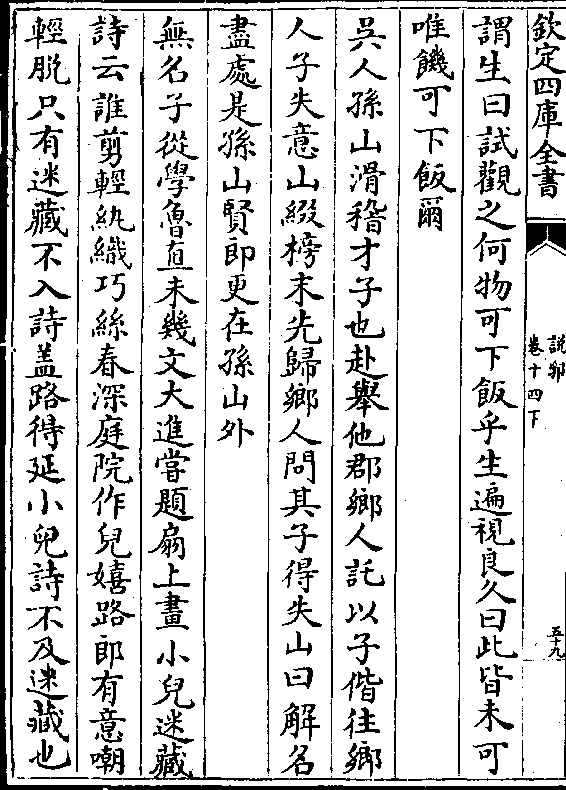 欽定四庫全書
說郛
卷十四下
五十九
謂生曰試觀之何物可下飯乎生遍視良久曰此皆未可
唯饑可下飯爾
吳人孫山滑稽才子也赴舉他郡鄉人託以子偕往鄉
人子失意山綴榜末先歸鄉人問其子得失山曰解名
盡處是孫山賢郎更在孫山外
無名子從學魯直未幾文大進嘗題扇上畫小兒迷藏
詩云誰剪輕紈織巧絲春深庭院作兒嬉路郎有意嘲
輕脫只有迷藏不入詩盖路得延小兒詩不及迷藏也